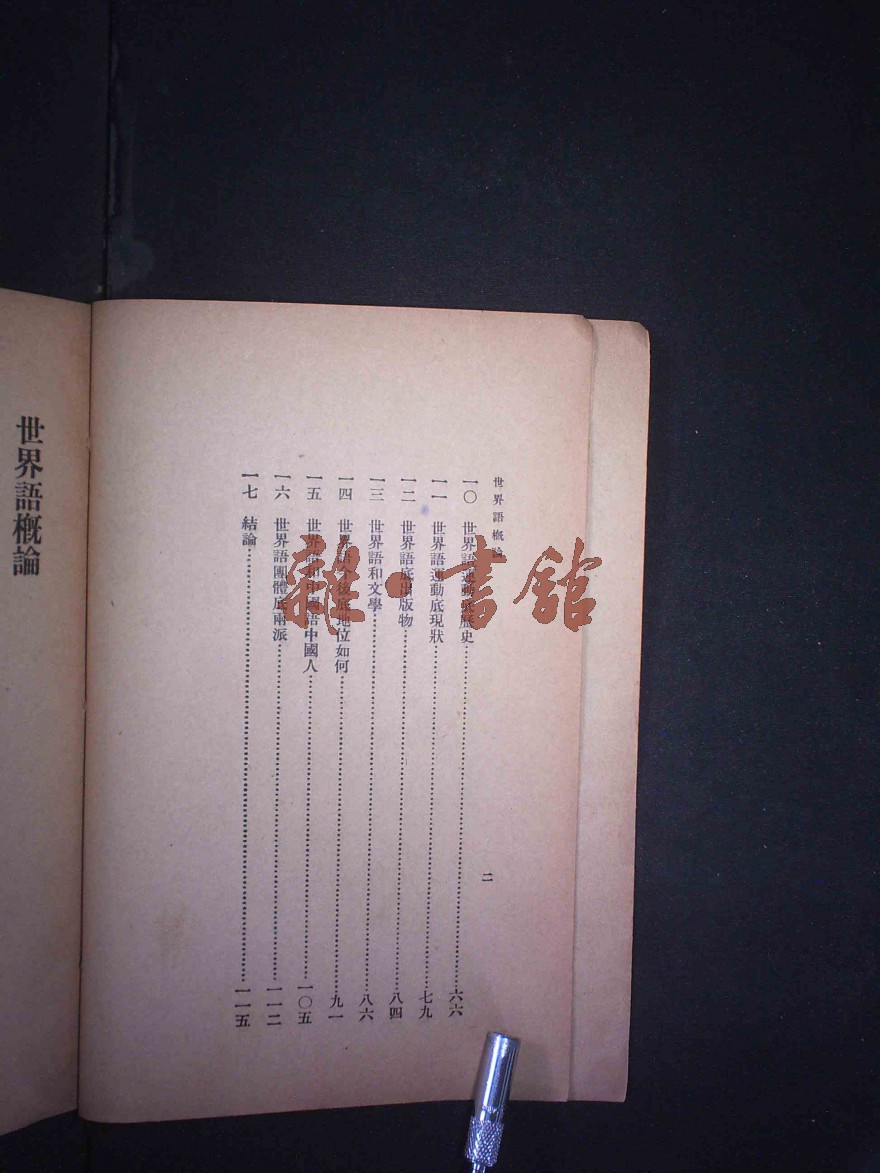 世界語概論
一〇 世界語運動底歷史……六六
一一 世界語運動底現狀……七九
一二 世界語底出版物……八四
一三 世界語和文學……八六
一四 世界語今後底地位如何……九一
一五 世界語和中國語中國人……一〇五
一六 世界語團體底兩派……一一二
一七 結論……一一五
二
世界語概論
雜·書館